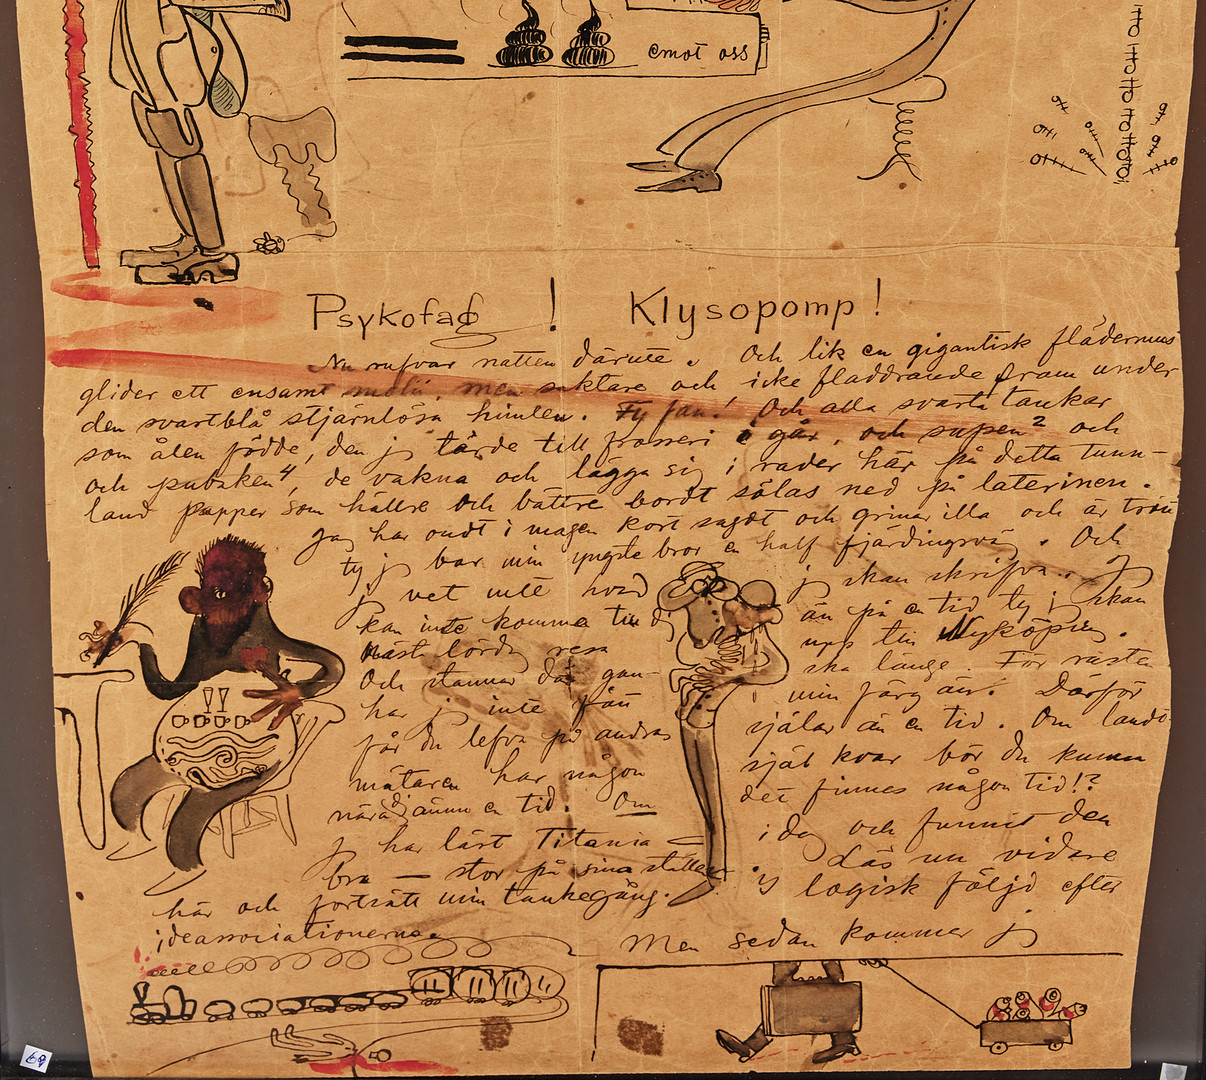 emot oss
Psykofag ! Klysopomp !
Nu rufvar natten därute. Och lik en gigantisk flädermus
glider ett ensamt moln, men saktare och icke fladdrande fram under
den svartblå stjärnlösa himlen. Fy fan! Och alla svarta tankar
som ålen födde, den jag tärde till frosseri i går, och supen² och
och pubaken⁴, de vakna och lägga sig i rader här på detta tunn-
land papper som hällre och bättre bordt sölas ned på laterinen.
Jag har ondt i magen kort sagdt och grinar illa och är trött
ty jag bar min yngste bror en half fjärdingsväg. Och
jag vet inte hvad jag skan skrifva. Jag
kan inte komma till än på en tid ty jag skan
näst lörda resa upp till Nyköping.
Och stannar där gan- ska länge. För rästen
har jag inte fått min färg än. Därför
får du lefva på andras själar än en tid. Om lands-
mätaren har någon själ kvar bör du kunna
nära dig ännu en tid. Om det finnes någon tid!?
jag har läst Titania i dag och funnit den
bra — stor på sina ställen. Läs nu vidare
här och fortsätt min tankegång. I logisk följd efter
ideassociationerna.
Men sedan kommer jag
69